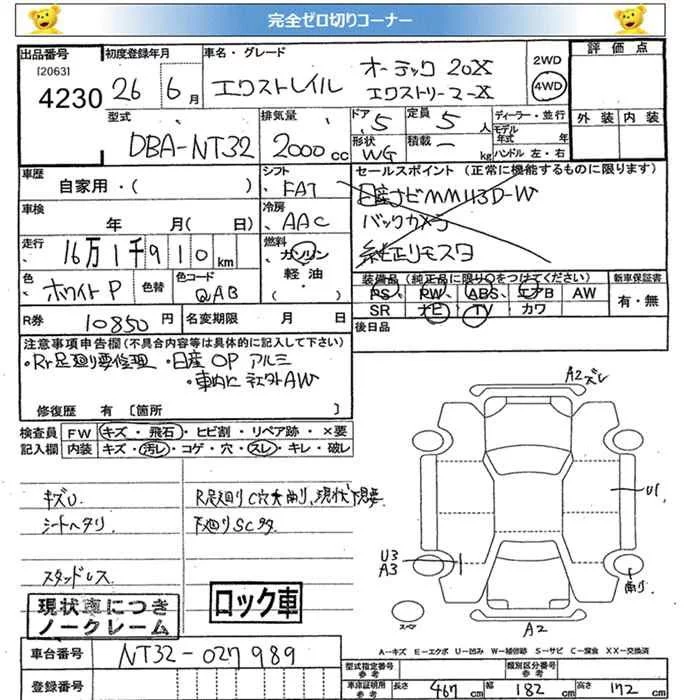 完全ゼロ切りコーナー
出品番号 初度登録年月 車名・グレード 評価点
[2063] オーテック 20X 2WD
4230 26 6月 エクストレイル エクストリーマーX 4WD
型式 排気量 ドア 定員 ディーラー・並行 外装 内装
DBA-NT32 2000cc 5 5人 モデル年式 年
形状 積載
WG ー kg ハンドル 左・右
車歴 シフト セールスポイント (正常に機能するものに限ります)
自家用・( ) FAT 日産ナビMM113D-W
車検 冷房 バックカメラ
年 月( 日) AAC
走行 燃料 純正リモスタ
16万1千910km ガソリン
軽油・
色 色替 色コード 装備品 (純正品に限り○をつけてください) 新車保証書
ホワイトP QAB PS、PW、ABS、エアB AW 有・無
SR ナビ TV カワ
R券 10850円 名変期限 月 日 後日品
注意事項申告欄(不具合内容等は具体的に記入して下さい)
・Rr足廻り要修理 ・日産OPアルミ
・車内に AW
修復歴 有 〔箇所 〕
検査員 FW キズ・飛石・ヒビ割・リペア跡・×要
記入欄 内装 キズ・汚レ・コゲ・穴・スレ・キレ・破レ
A2ズレ
キズU R足廻りC穴大曲り、現状下見要
シートヘタリ 下廻りSC多
U1
U3
A3
スタッドレス 曲り
現状車につき
ノークレーム
ロック車
スペア
A2
A-キズ E-エクボ U-凹み W-補修跡 S-サビ C-腐食 XX-交換済
車台番号 NT32-027989
型式指定番号 参考 類別区分番号 参考
登録番号 車体証明用 参考 長さ 467cm 幅 182cm 高さ 172cm